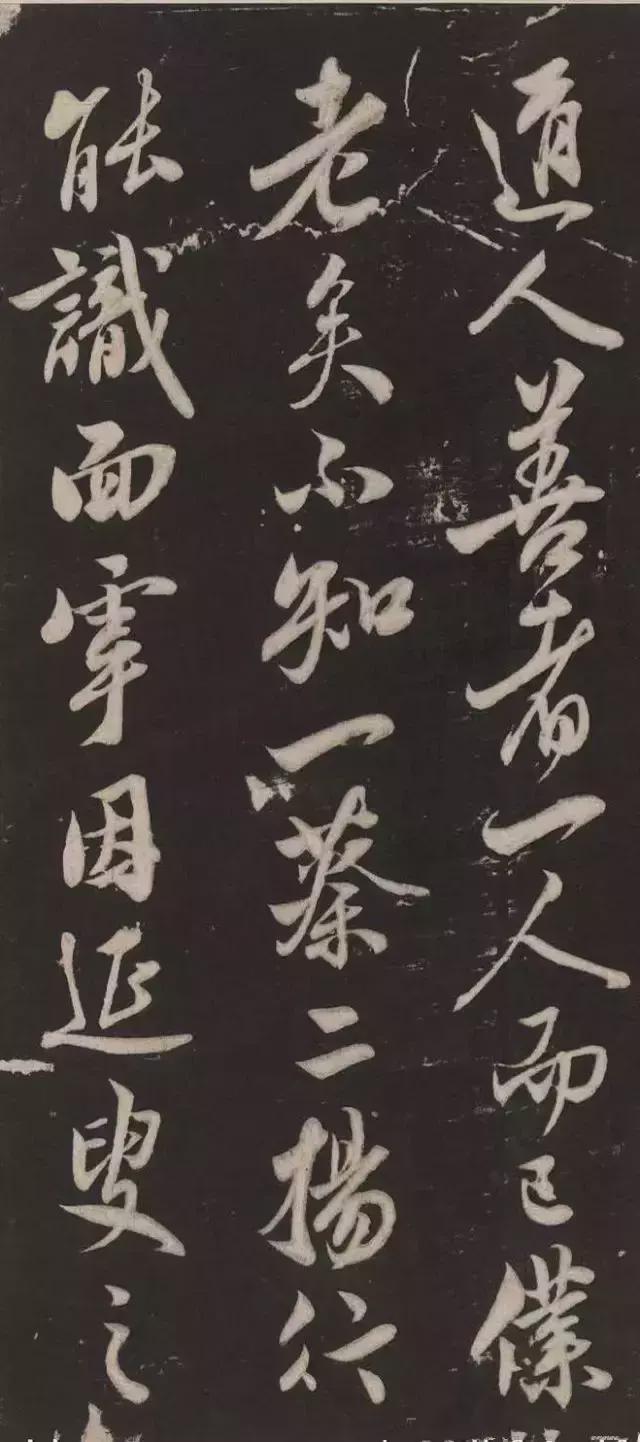 道人善者一人而已僕
老矣不知一蔡二揚行
能識面寧因延叟之